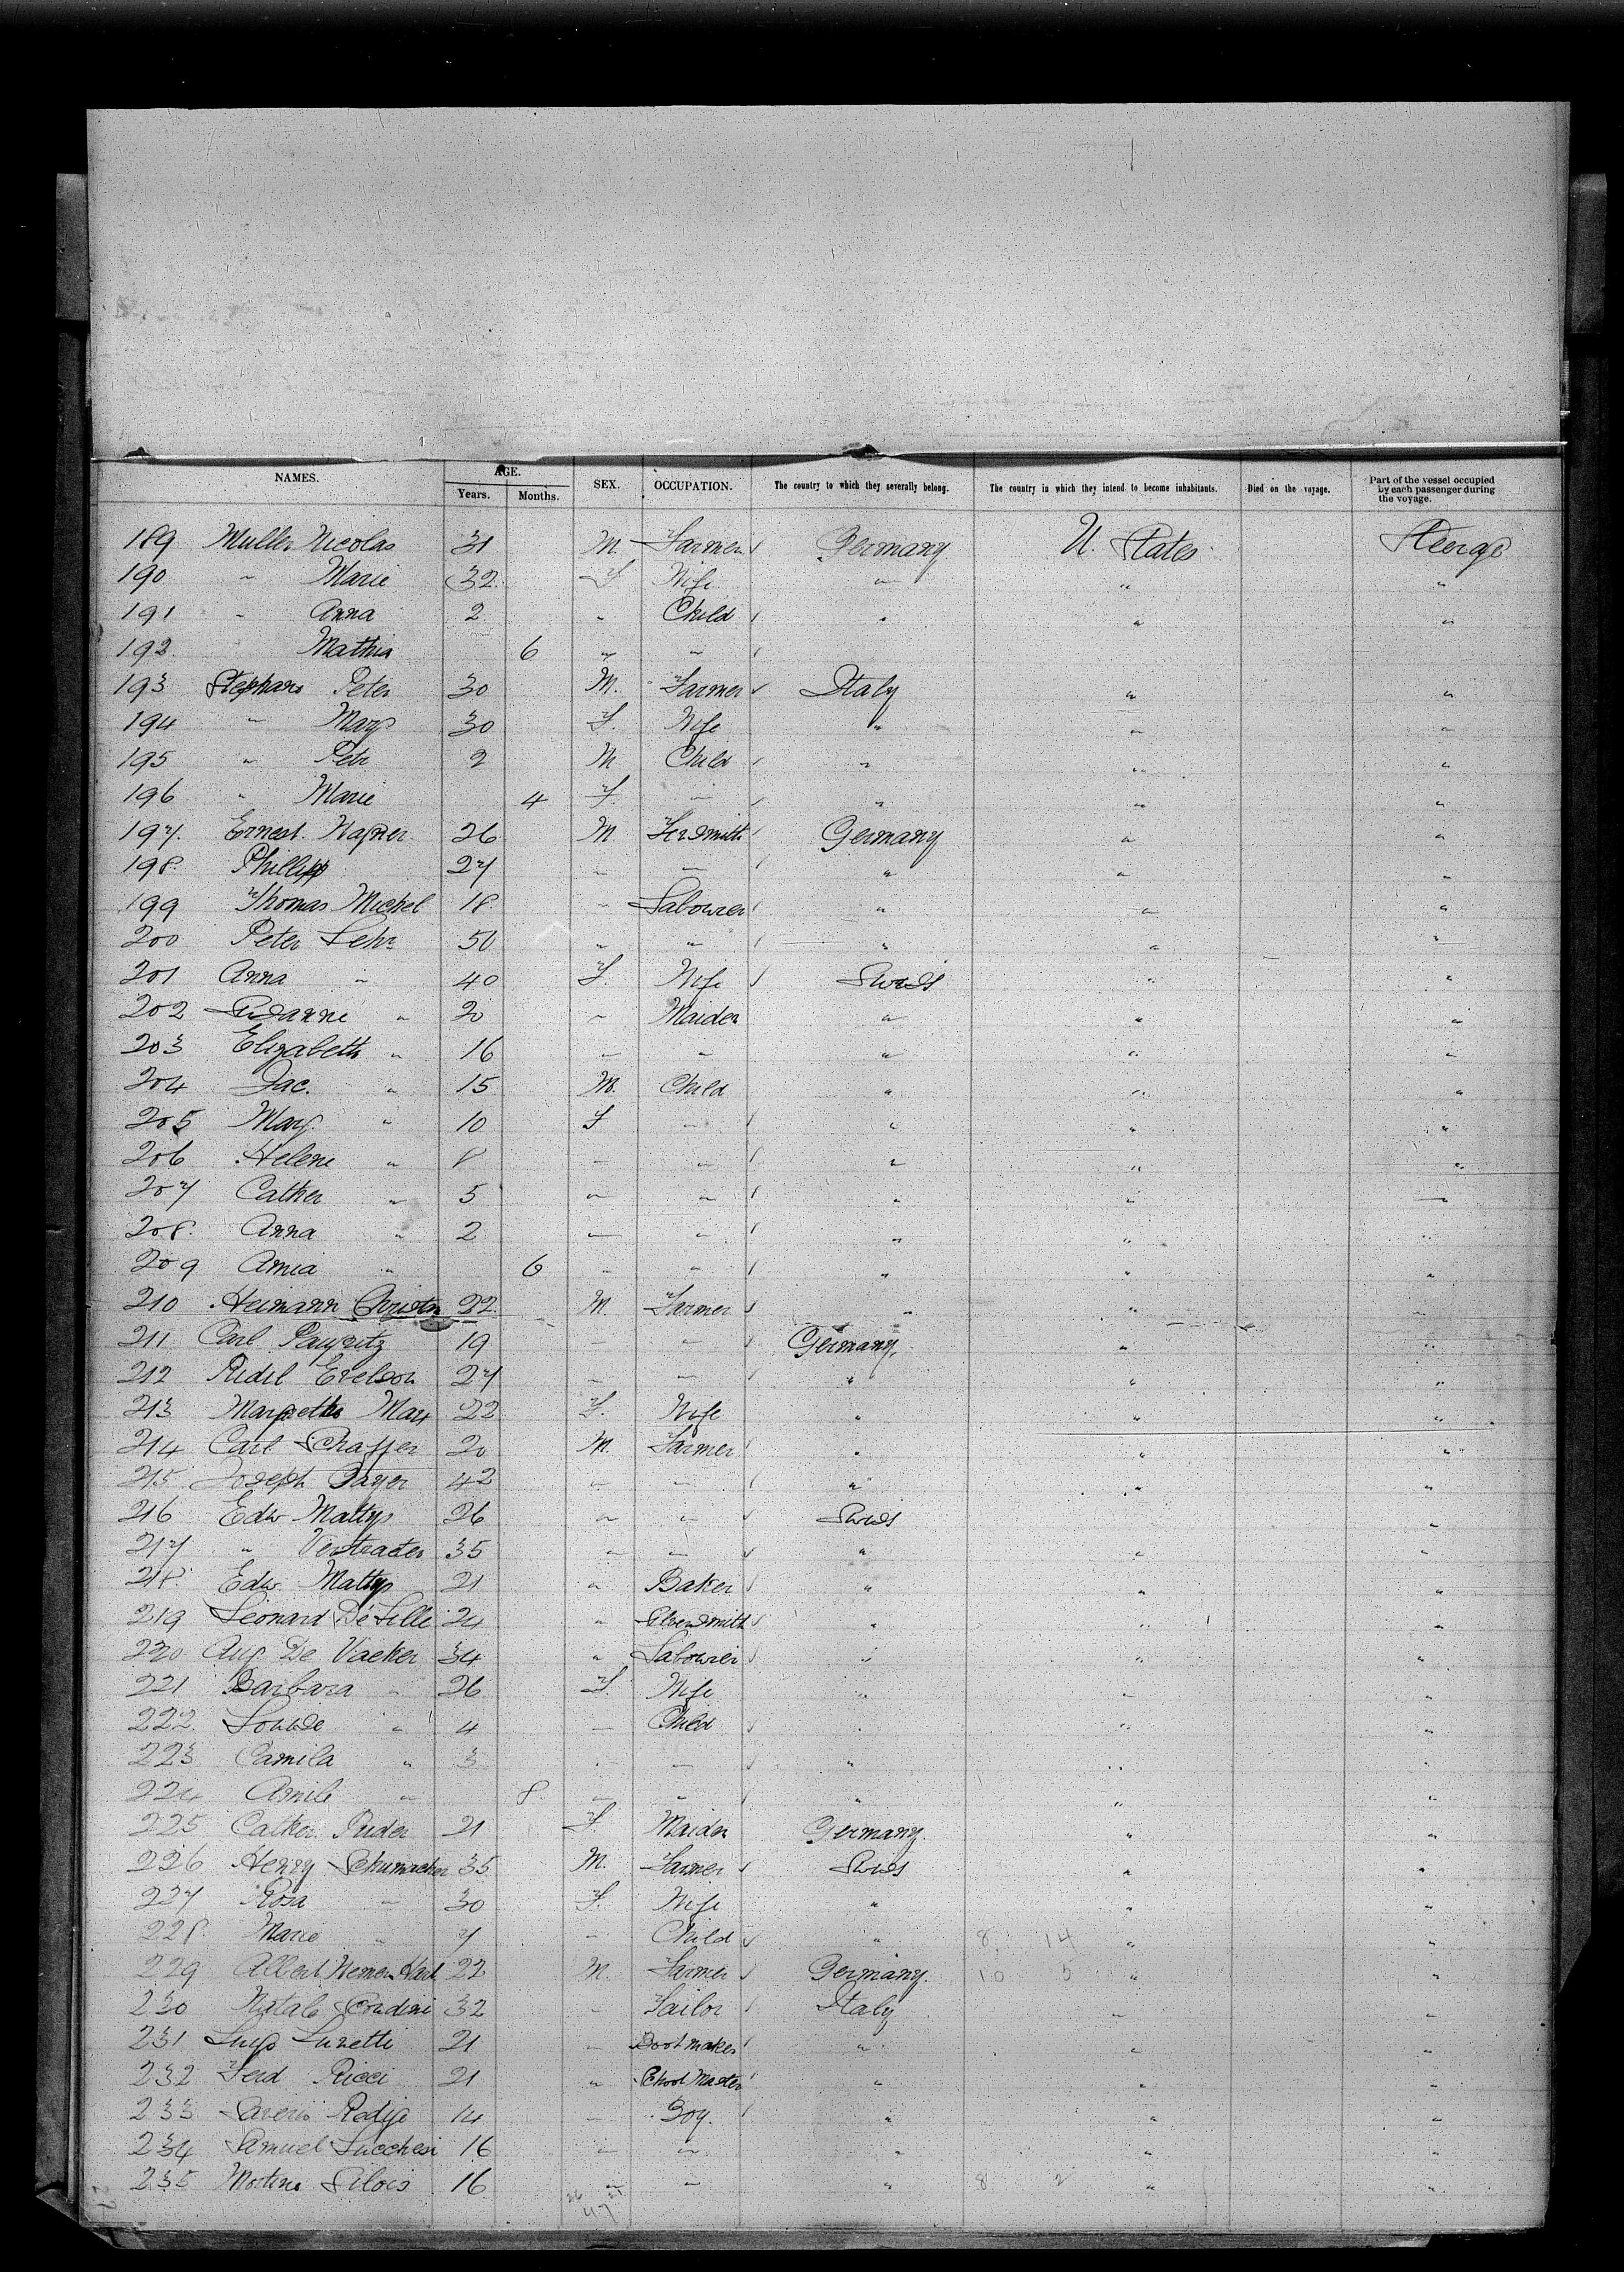 NAMES. AGE. SEX. OCCUPATION. The country to which they severally belong. The country in which they intend to become inhabitants. Died on the voyage. Part of the vessel occupied by each passenger during the voyage.
Years. Months.
189 Muller Nicolas 31 M. Farmer Germany U. States Steerge
190 " Marie 32 F Wife " " "
191 " Anna 2 " Child " " "
192 Mathia 6 " "
193 Stephans Peter 30 M. Farmer Italy " "
194 " Mary 30 F. Wife " " "
195 " Petr 2 M Child " " "
196 " Marie 4 F. " " " "
197. Ernest Wagner 26 M Germany " "
198. Phillipp 27 " " " " "
199 Thomas Michel 18 " Labourer " " "
200 Peter Lehr 50 " " " " "
201 Anna " 40 F. Wife Swiss " "
202 Susanne " 20 " Maiden " " "
203 Elizabeth " 16 " " " " "
204 Jac. " 15 M. Child " " "
205 Mary " 10 F " " " "
206 Helene " 8 " " " " "
207 Cather " 5 " " " " "
208. Anna " 2 " " " " "
209 " 6 " " " " "
210 Heimann Christn 22 M. Farmer " "
211 Carl 19 " " Germany, " "
212 27 " " " " "
213 Margretha Marx 22 F. Wife " " "
214 Carl Schaffer 20 M. Farmer " " "
215 Joseph 42 " " " " "
216 Edw Mattys 26 " " Swiss "
217 " Verstraeten 35 " " " " "
218. Edw Mattys 21 " Baker " " "
219 Leonard De Lille 24 " Silversmith " " "
220 Aug De Vaeker 34 " Labourer " " "
221 Barbara " 26 F. Wife " " "
222. Louise " 4 " Child " " "
223 Camila " 3 " " " " "
224 " 8 " " " " "
225 Cather 21 F. Maiden Germany. " "
226 Henry Schumacher 35 M. Farmer Swiss " "
227 Rosa " 30 F. Wife " " "
228. Marie " 7 " Child " 8 14 " "
229 Albert 22 M. Farmer Germany. 10 5 " "
230 Natale 32 " Sailor Italy " "
231 Luigi 21 " Bootmaker " " "
232 Ferd Ricci 21 " School Master " " "
233 14 " Boy. " " "
234 Samuel Lucchesi 16 " " " " "
235 16 " " " 8 2 " "
47